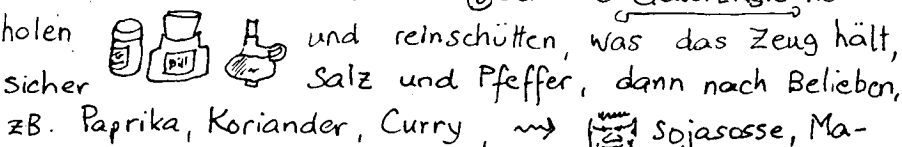 holen und reinschütten, was das Zeug hält,
sicher Salz und Pfeffer, dann nach Belieben,
zB. Paprika, Koriander, Curry, ⇝ Sojasosse, Ma-